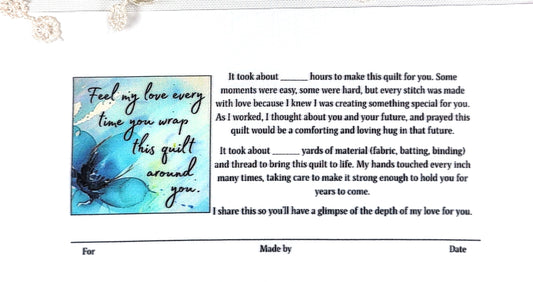 Feel my love every
time you wrap
this quilt
around
you.
It took about ______ hours to make this quilt for you. Some
moments were easy, some were hard, but every stitch was made
with love because I knew I was creating something special for you.
As I worked, I thought about you and your future, and prayed this
quilt would be a comforting and loving hug in that future.
It took about ______ yards of material (fabric, batting, binding)
and thread to bring this quilt to life. My hands touched every inch
many times, taking care to make it strong enough to hold you for
years to come.
I share this so you'll have a glimpse of the depth of my love for you.
For Made by Date